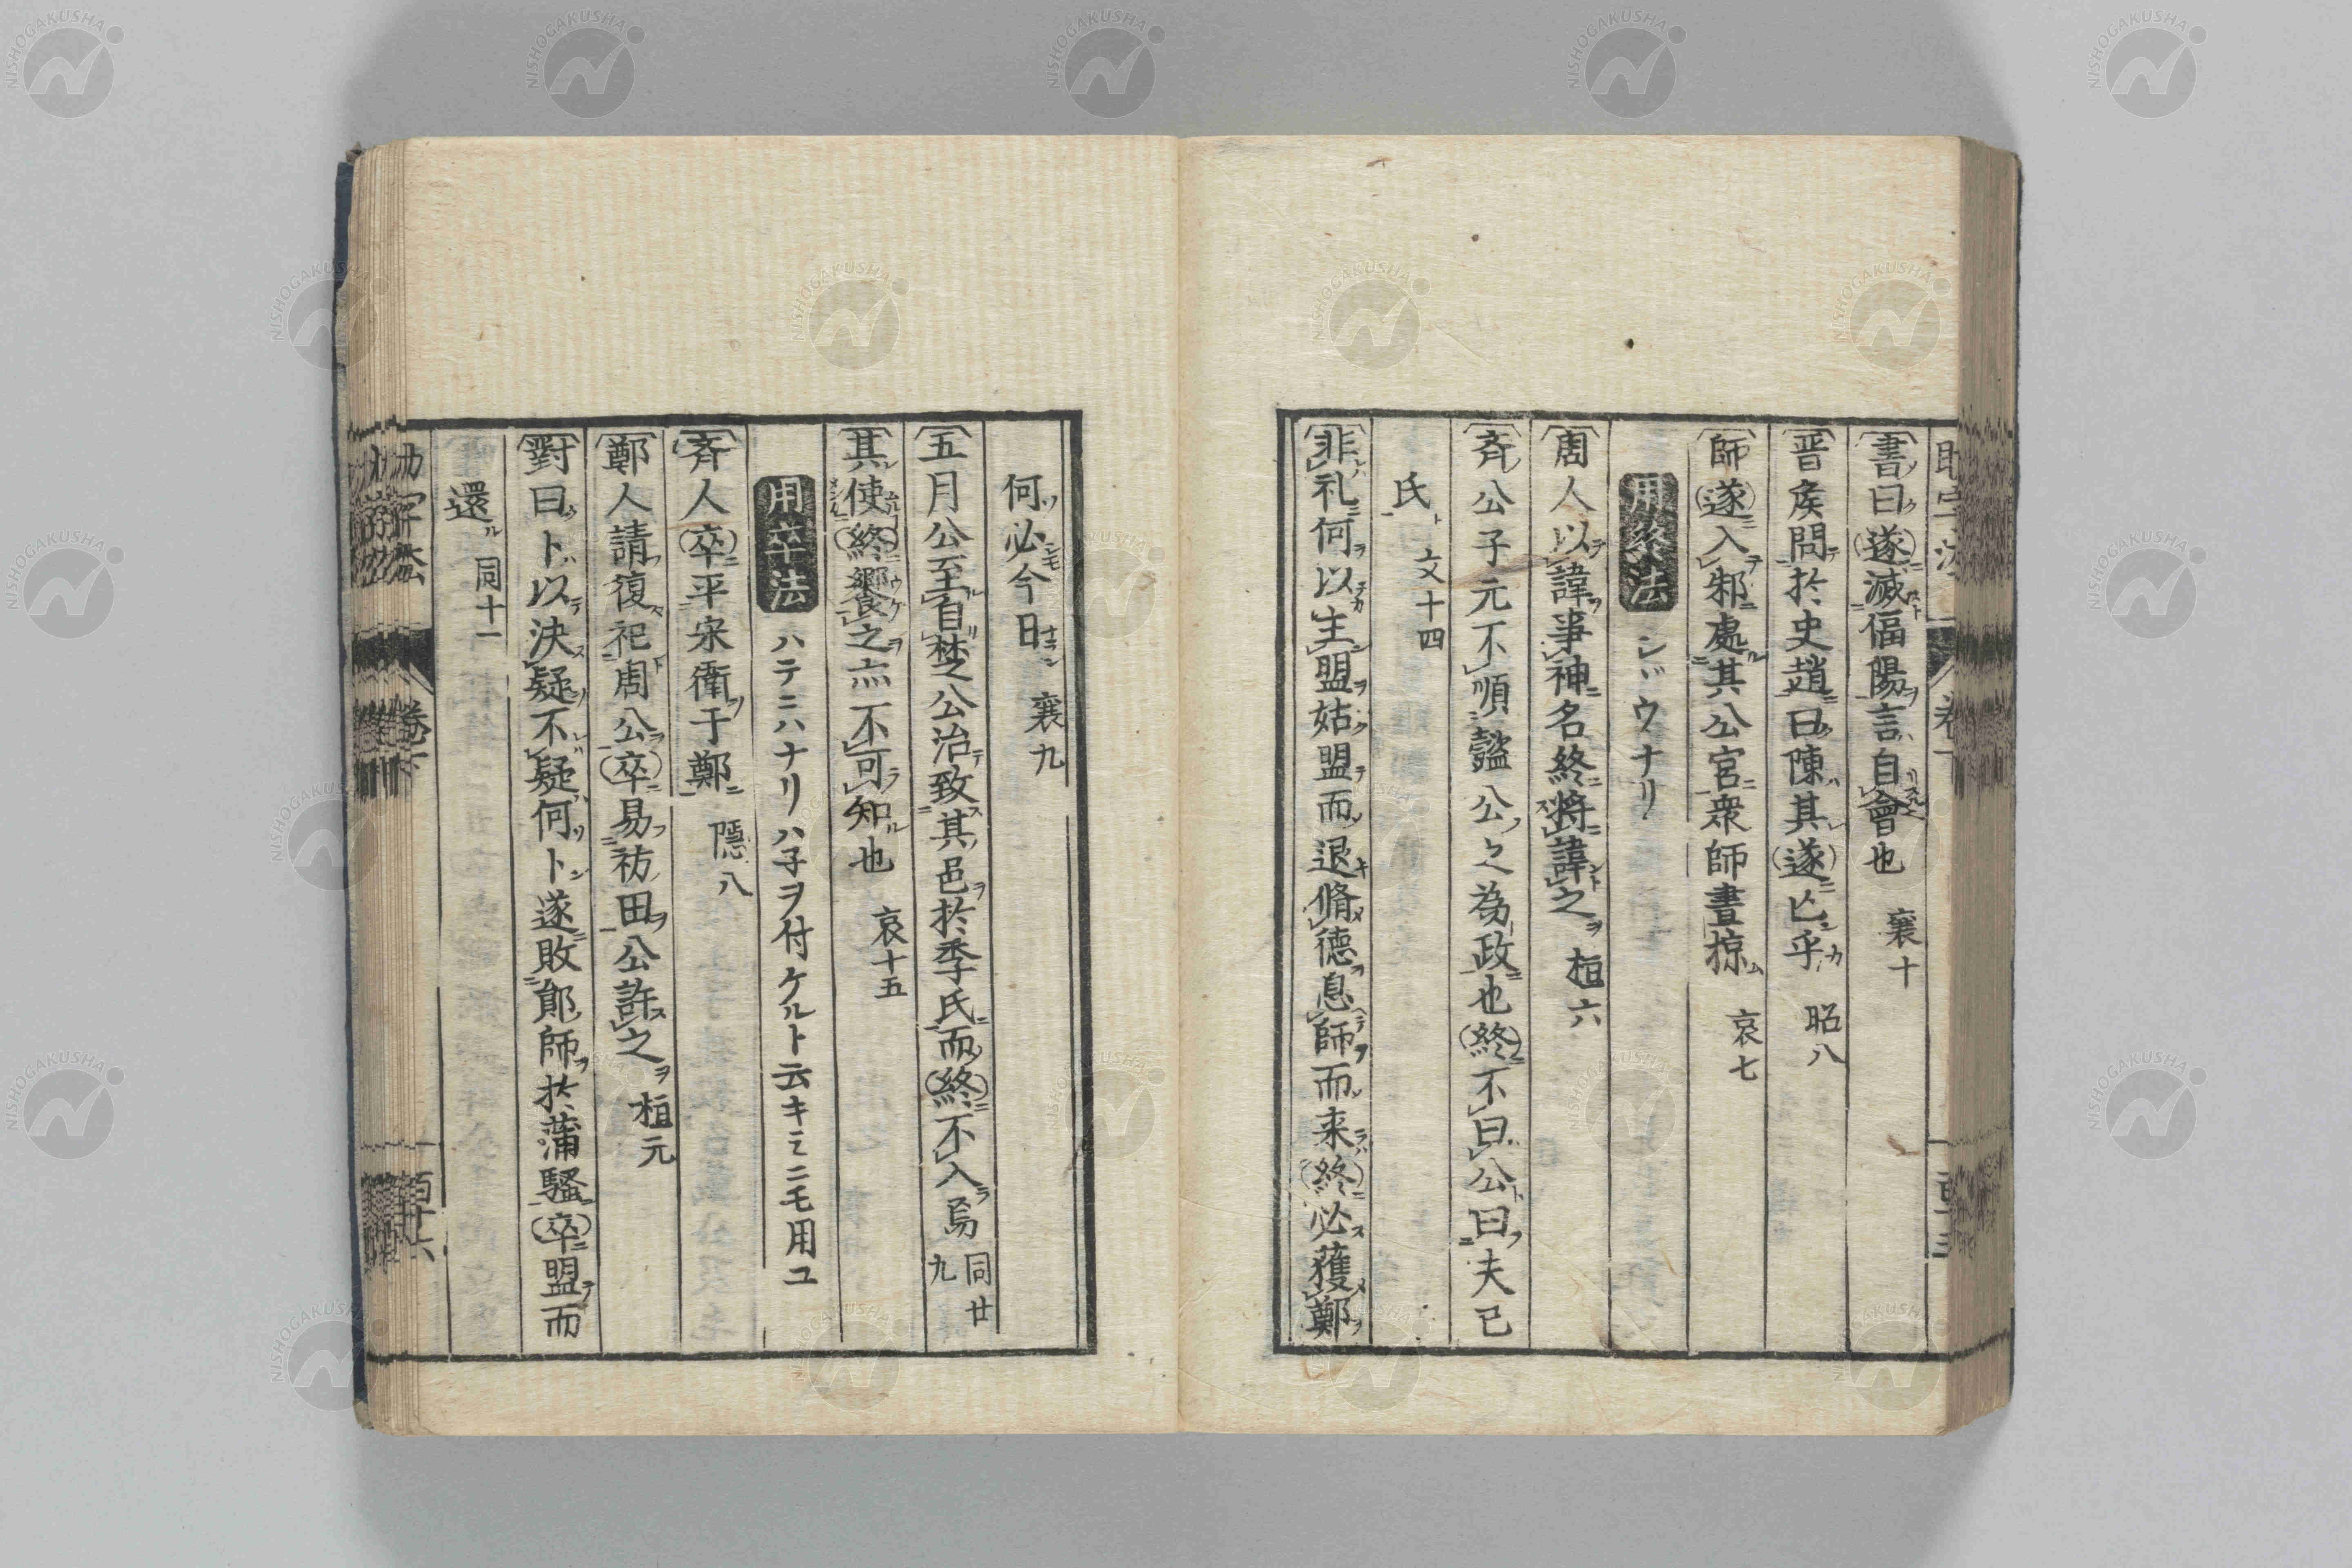 書曰遂滅偪陽言自會也 襄十
晋矦問於史趙曰陳其遂亡乎 昭八
師遂入邾處其公宮衆師晝掠 哀七
用終法 シバウナリ
周人以諱事神名終將諱之 桓六
斉公子元不順懿公之為政也終不曰公曰夫己
氏 文十四
非礼何以主盟姑盟而退脩德息師而来終必獲鄭
何必今日 襄九
五月公至自楚公治致其邑於季氏而終不入焉 同廿九
其使終饗之亦不可知也 哀十五
用卒法 ハテニハナリハ子ヲ付ケルト云キミニモ用ユ
斉人卒平宋衛于鄭 隱八
鄭人請復祀周公卒易祊田公許之 桓元
對曰卜以決疑不疑何卜遂敗鄖師於蒲騷卒盟而
還 同十一
NISHOGAKUSHA